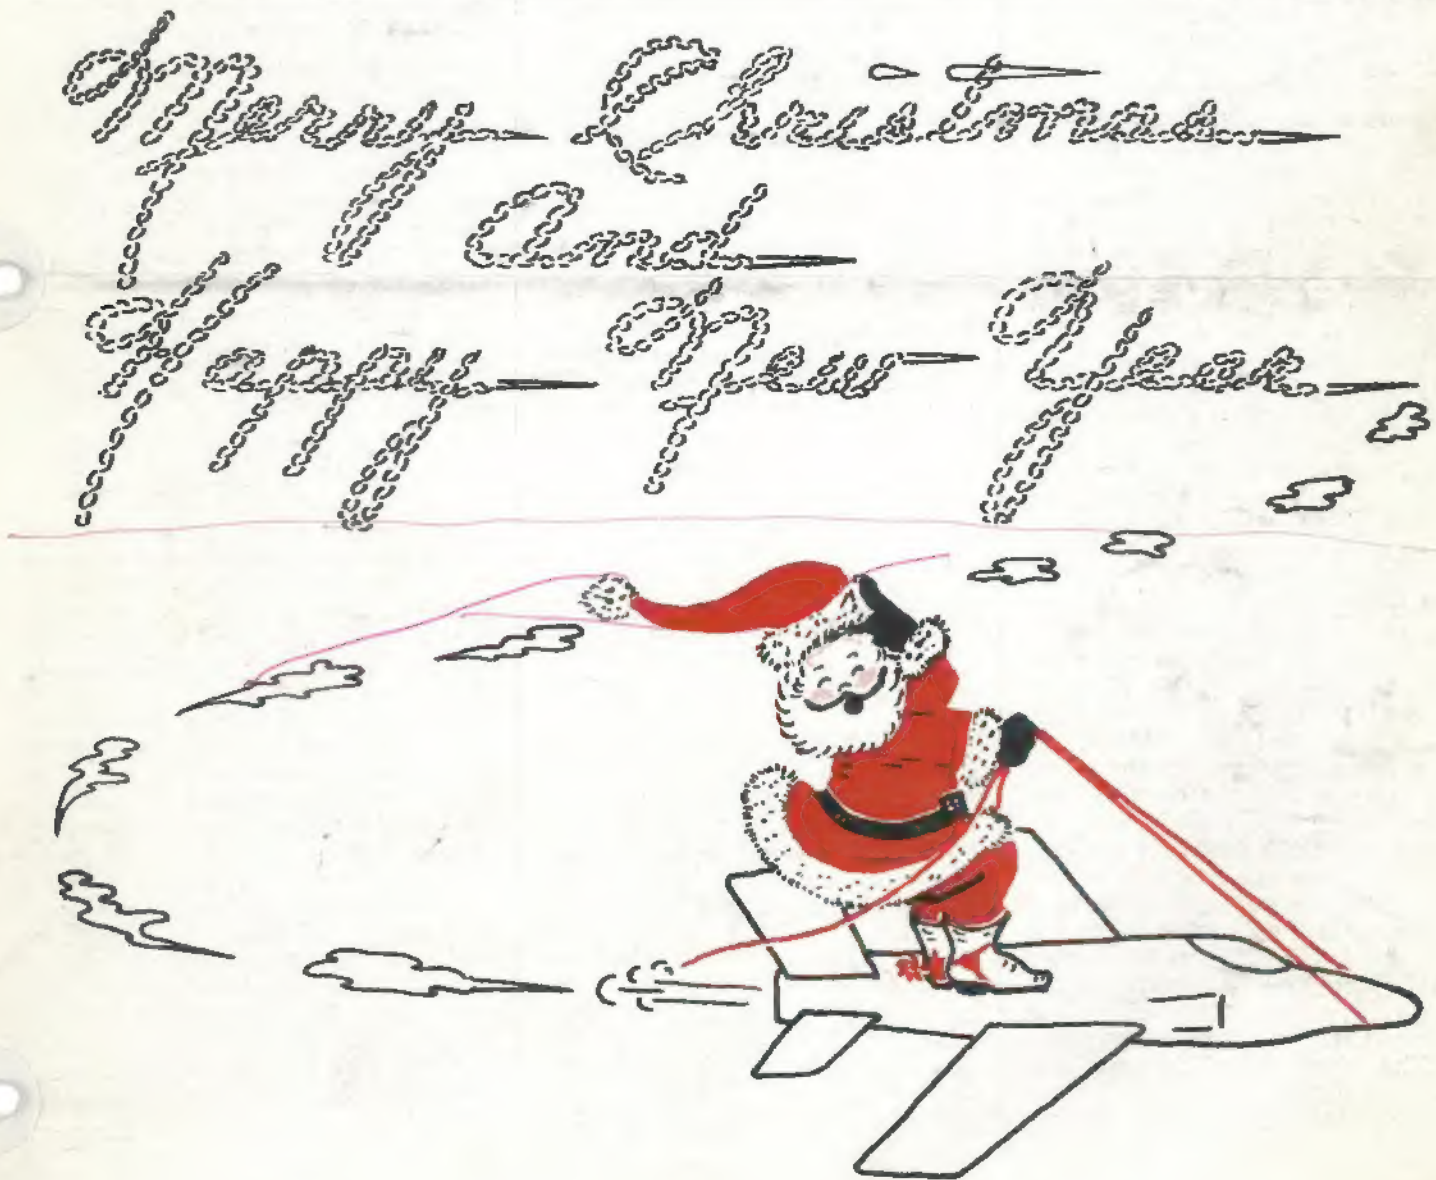 Merry Christmas
And
Happy New Year